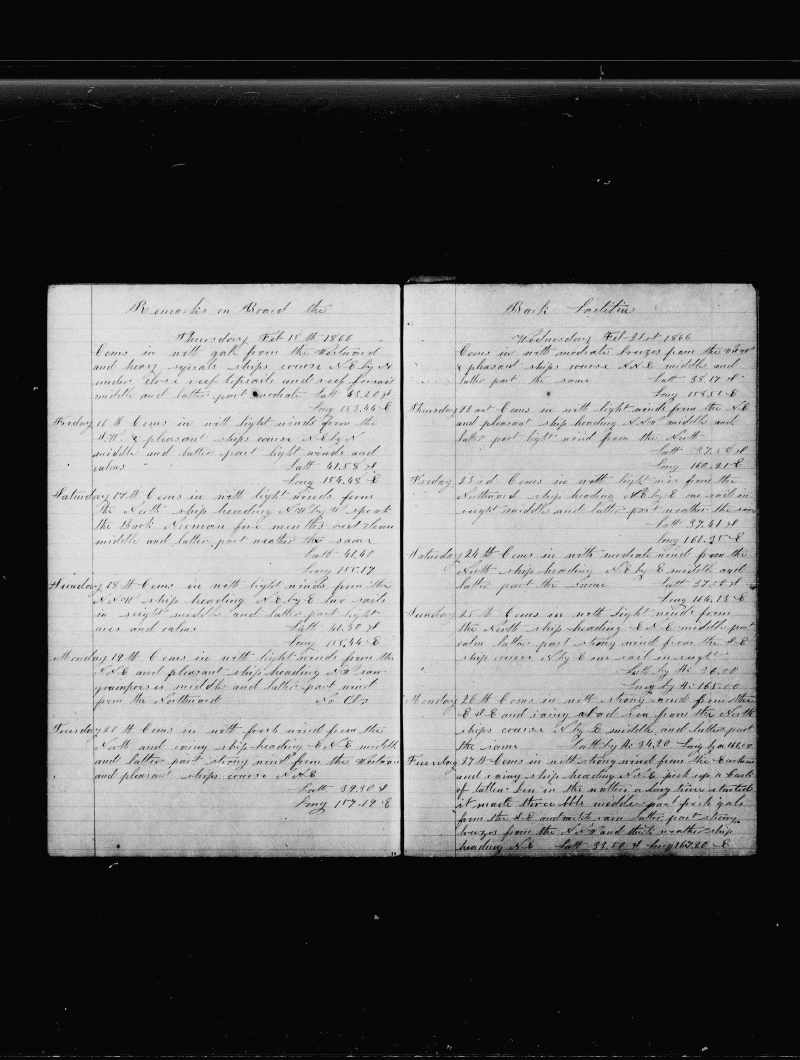 Remarks on Board the
Thursday Feb 15th 1866
Coms in with gale from the Westward
and heavy squals ships course N E by N
under close reef topsails and reef foresail
middle and latter part modrate Latt 43.20 S
Long 153.44 E
Friday 16th Coms in with light winds from the
S.W. & pleasant ships course N E by N
middle and latter part light winds and
calms Latt 41.58 S
Long 154.48 E
Saturday 17th Coms in with light winds from
the North ship heading N W by W speak
the Bark Norman five months out clean
middle and latter part weather the same
Latt 41.40
Long 155.17
Sunday 18th Coms in with light winds from the
N.N.W ship heading N.E by E two sails
in seight middle and latter part light
airs and calms Latt 41.30 S
Long 155.44 E
Monday 19th Coms in with light winds from the
N.N.E and pleasant ship heading N.W saw
grampuses middle and latter part wind
from the Northward No Obs
Tuesday 20th Coms in with fresh wind from the
North and rainy ship heading E.N.E middle
and latter part strong wind from the Westward
and pleasant ships course N.N.E
Latt 39.30 S
Long 157.19 E
Bark Laetitia
Wednesday Feb 21st 1866
Coms in with modrate breezes from the
& pleasant ships course N.N.E middle and
latter part the same Latt 38.17 S
Long 158.51 E
Thursday 22 Coms in with light winds from the N.E
and pleasant ship heading N.N.W middle and
latter part light wind from the North
Latt 37.38 S
Long 160.21 E
Friday 23rd Coms in with light airs from the
Northward ship heading N.E by E one sail in
seight middle and latter part weather the same
Latt 37.41 S
Long 161.35 E
Saturday 24th Coms in with modrate wind from the
North ship heading N.E by E middle and
latter part the same Latt 37.00 S
Long 164.13 E
Sunday 25th Coms in with light winds from
the North ship heading E.N.E middle part
calm latter part strong wind from the S.E
ship course N by E one sail in seight
Latt by A: 36.00
Long by A: 165.00
Monday 26th Coms in with strong wind from the
E.S.E and rainy a bad sea from the North
ships course N by E middle and latter part
the same Latt by A: 34.20 Long by A 166.00
Tuesday 27th Coms in with strong wind from the Eastward
and rainy ship heading N.N.E pick up a Cask
of tallow ben in the watter a long time started
it made three bbls middle part fresh gale
from the S.E and rain latter part strong
breezes from the N.N.W and thick weather ship
heading N.E Latt 33.50 S Long 167.20 E